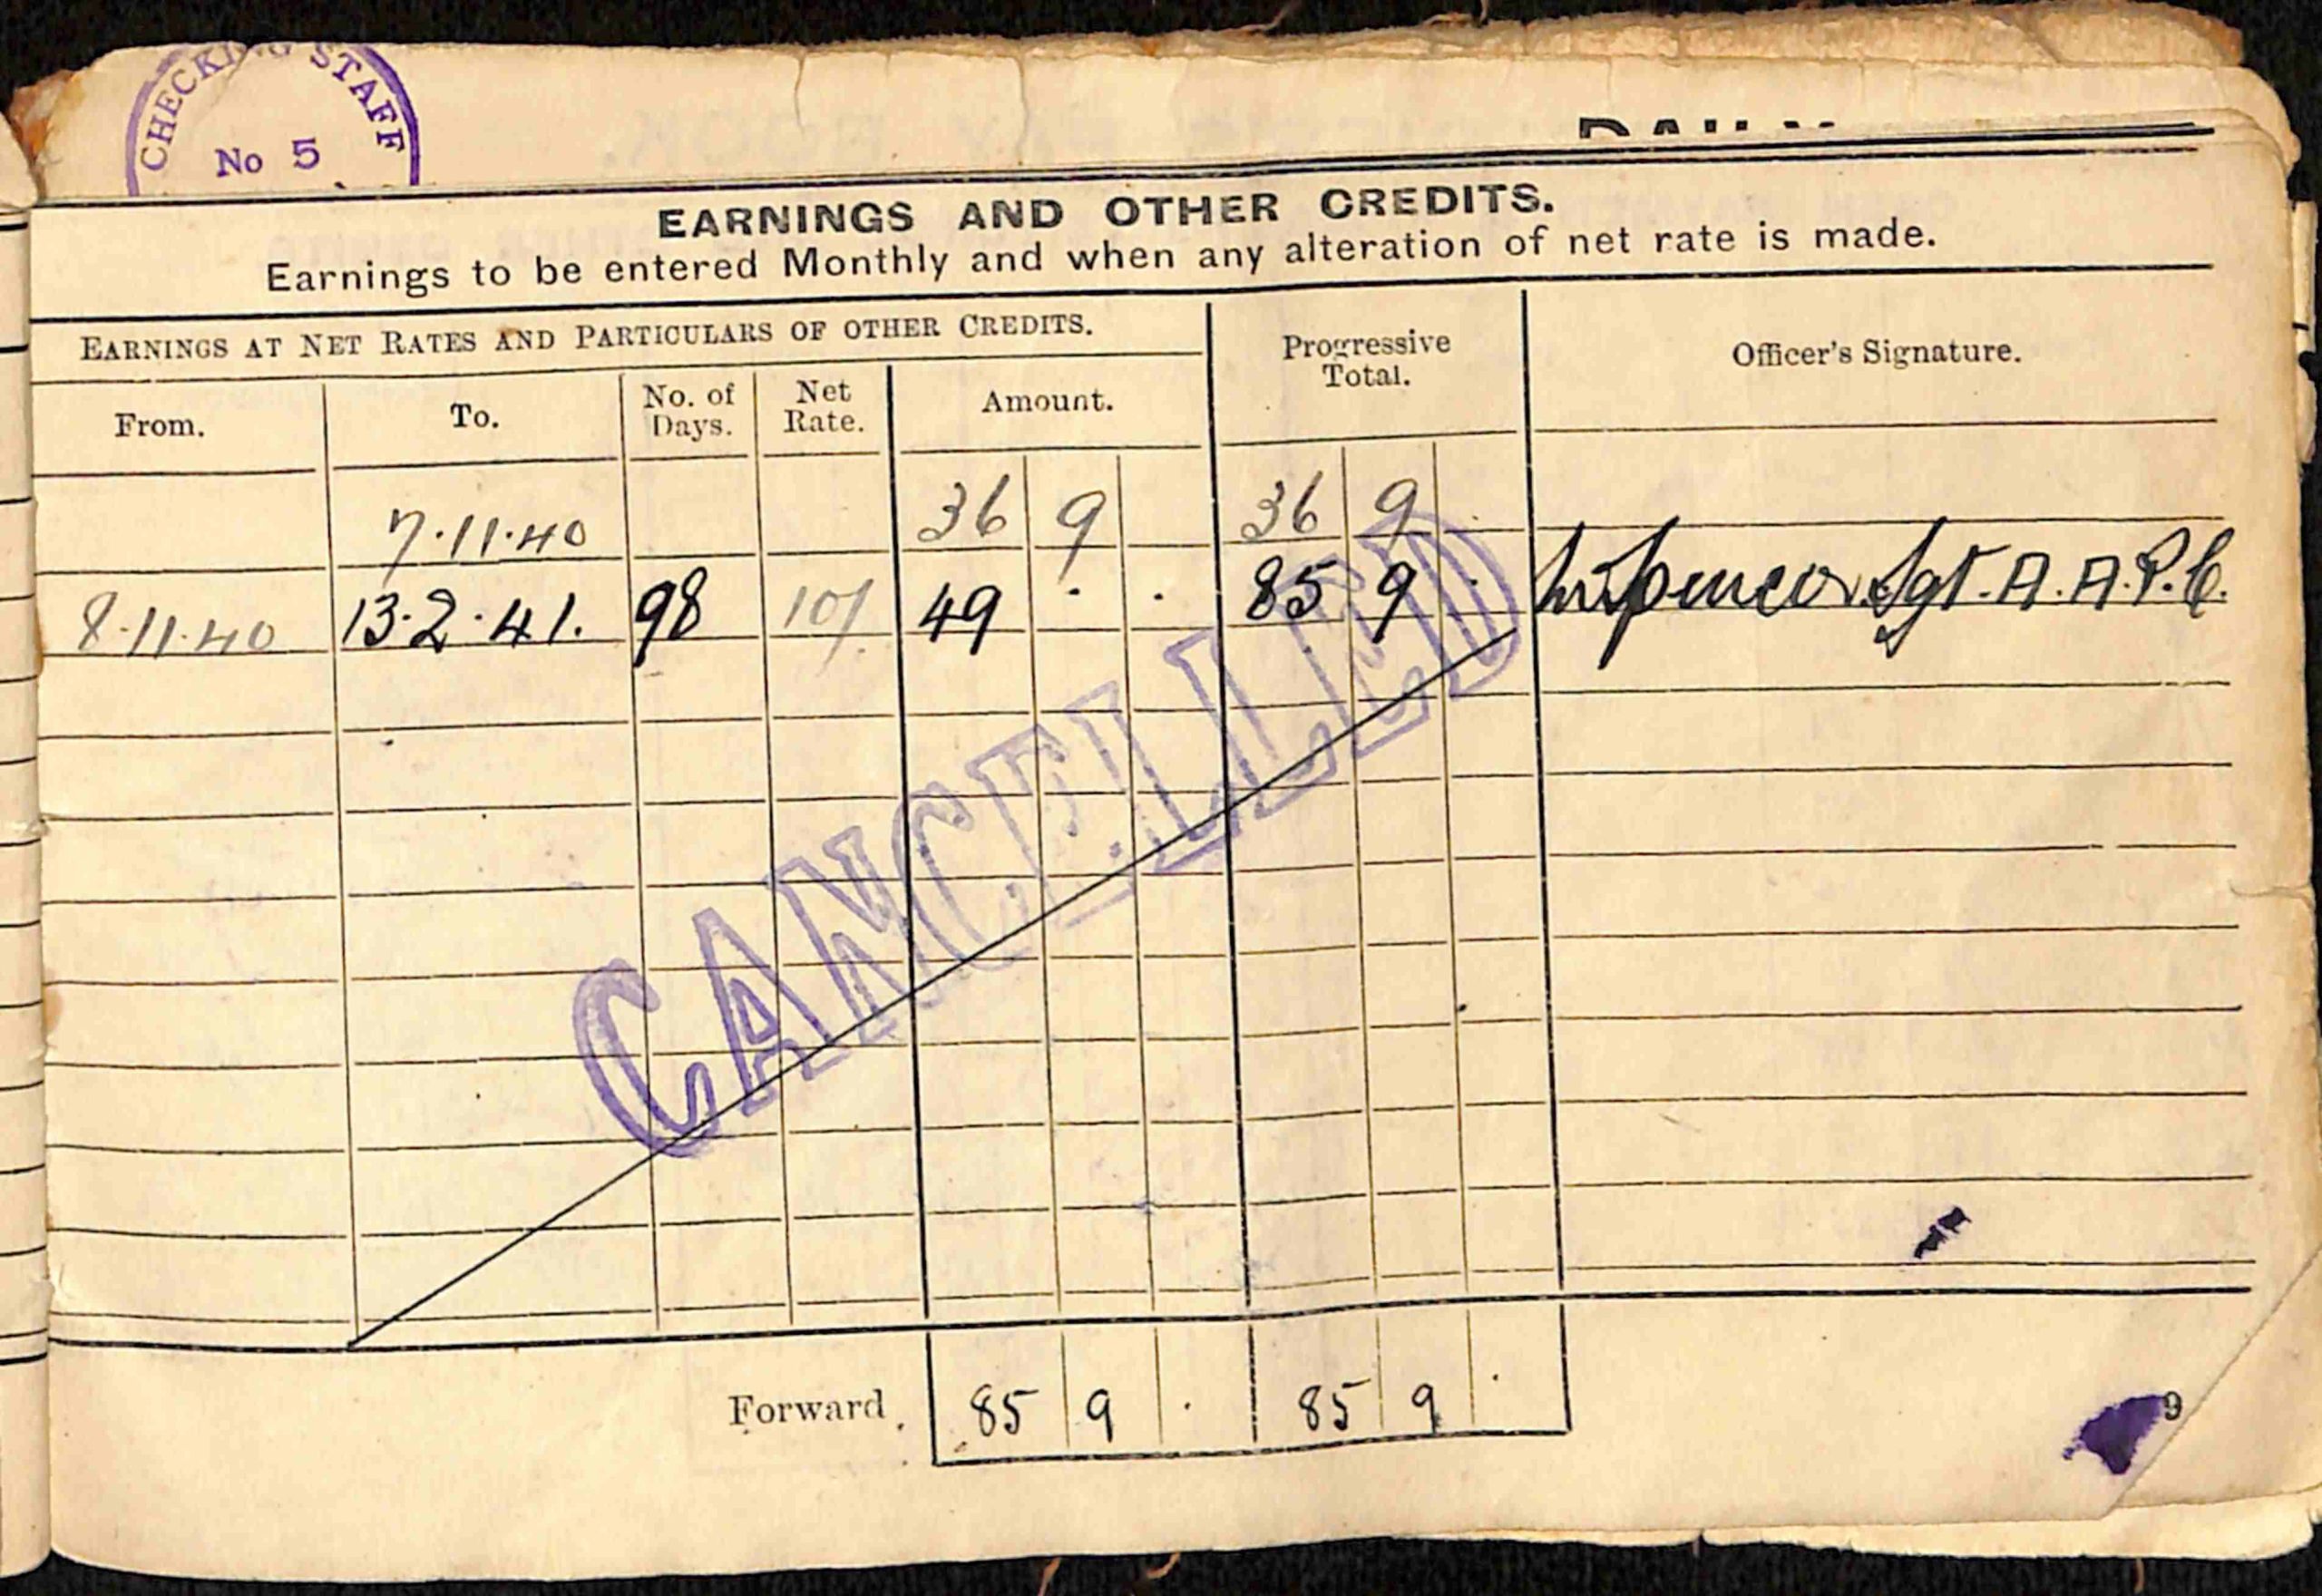 CHECKING STAFF
No 5
EARNINGS AND OTHER CREDITS.
Earnings to be entered Monthly and when any alteration of net rate is made.
EARNINGS AT NET RATES AND PARTICULARS OF OTHER CREDITS.
Progressive Total.
Officer's Signature.
From. To. No. of Days. Net Rate. Amount.
7.11.40 36 9 36 9
8.11.40 13.2.41. 98 10/ 49 . . 85 9 . Sgt. A.A.P.C.
CANCELLED
Forward 85 9 . 85 9 .
9